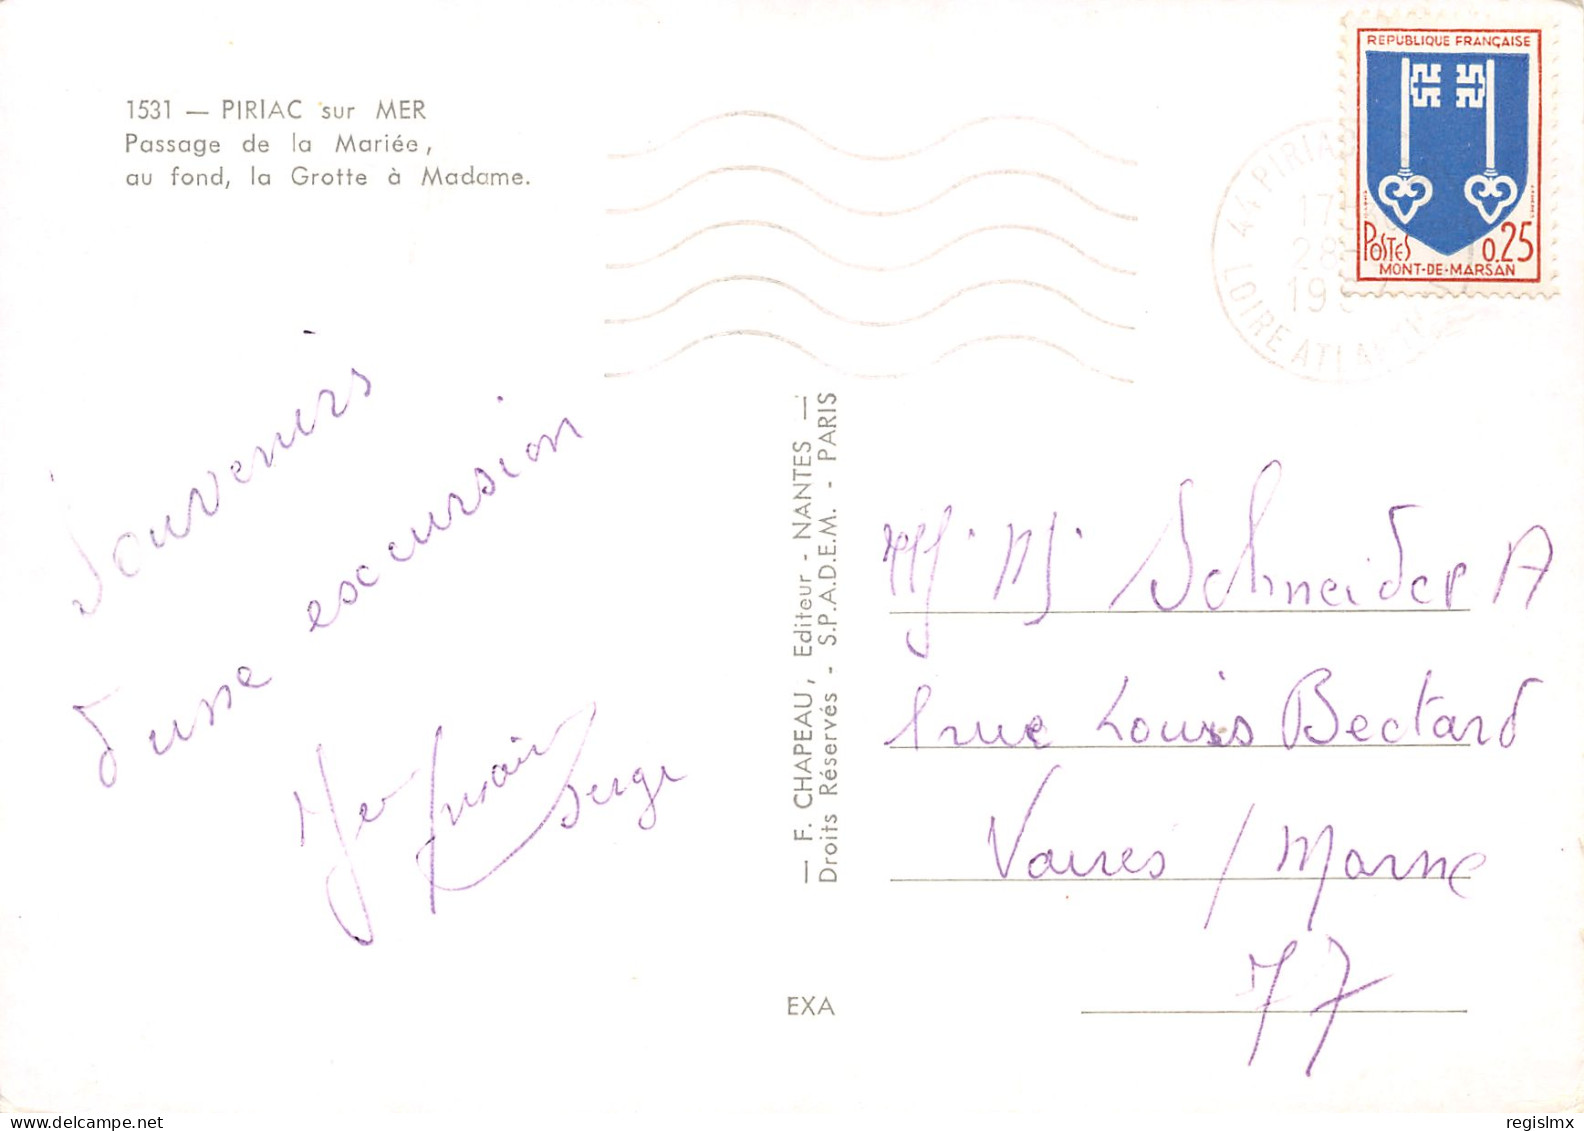 1531 — PIRIAC sur MER
Passage de la Mariée,
au fond, la Grotte à Madame.
REPUBLIQUE FRANÇAISE
POSTES 0,25
MONT-DE-MARSAN
44 PIRIAC
17
28
19
LOIRE ATLANTIQUE
Souvenirs
d'une excursion
Serge
— F. CHAPEAU, Editeur - NANTES —
Droits Réservés - S.P.A.D.E.M. - PARIS
EXA
M. Schneider A
rue Louis Bectard
Vaires / Marne
77
regislmx